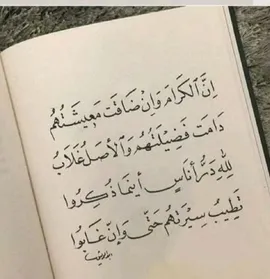 إنَّ الكرامَ وإنْ ضاقت معيشتُهُم
دامت فضيلتُهُم والأصلُ غلَّابُ
للهِ درُّ أُناسٍ أينما ذُكروا
تطيبُ سيرتُهُم حتَّى وإنْ غابُوا